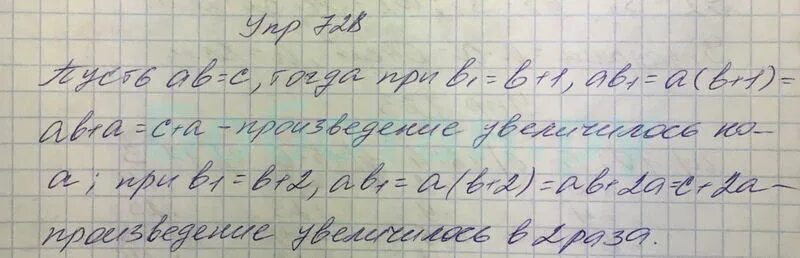 Упр 728
Пусть ab=c, тогда при b₁=b+1, ab₁=a(b+1)=
ab+a=c+a - произведение увеличилось на-
a; при b₁=b+2, ab₁=a(b+2)=ab+2a=c+2a-
произведение увеличилось в 2 раза.